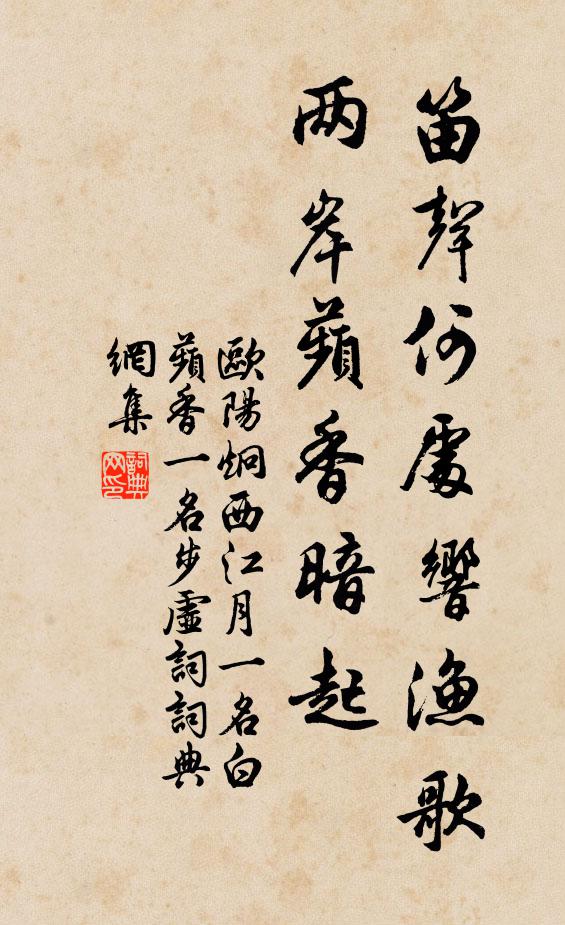 笛聲何處響漁歌
两岸蘋香暗起
歐陽炯西江月一名白
蘋香一名步虛詞詞典
網集
詞典
网印